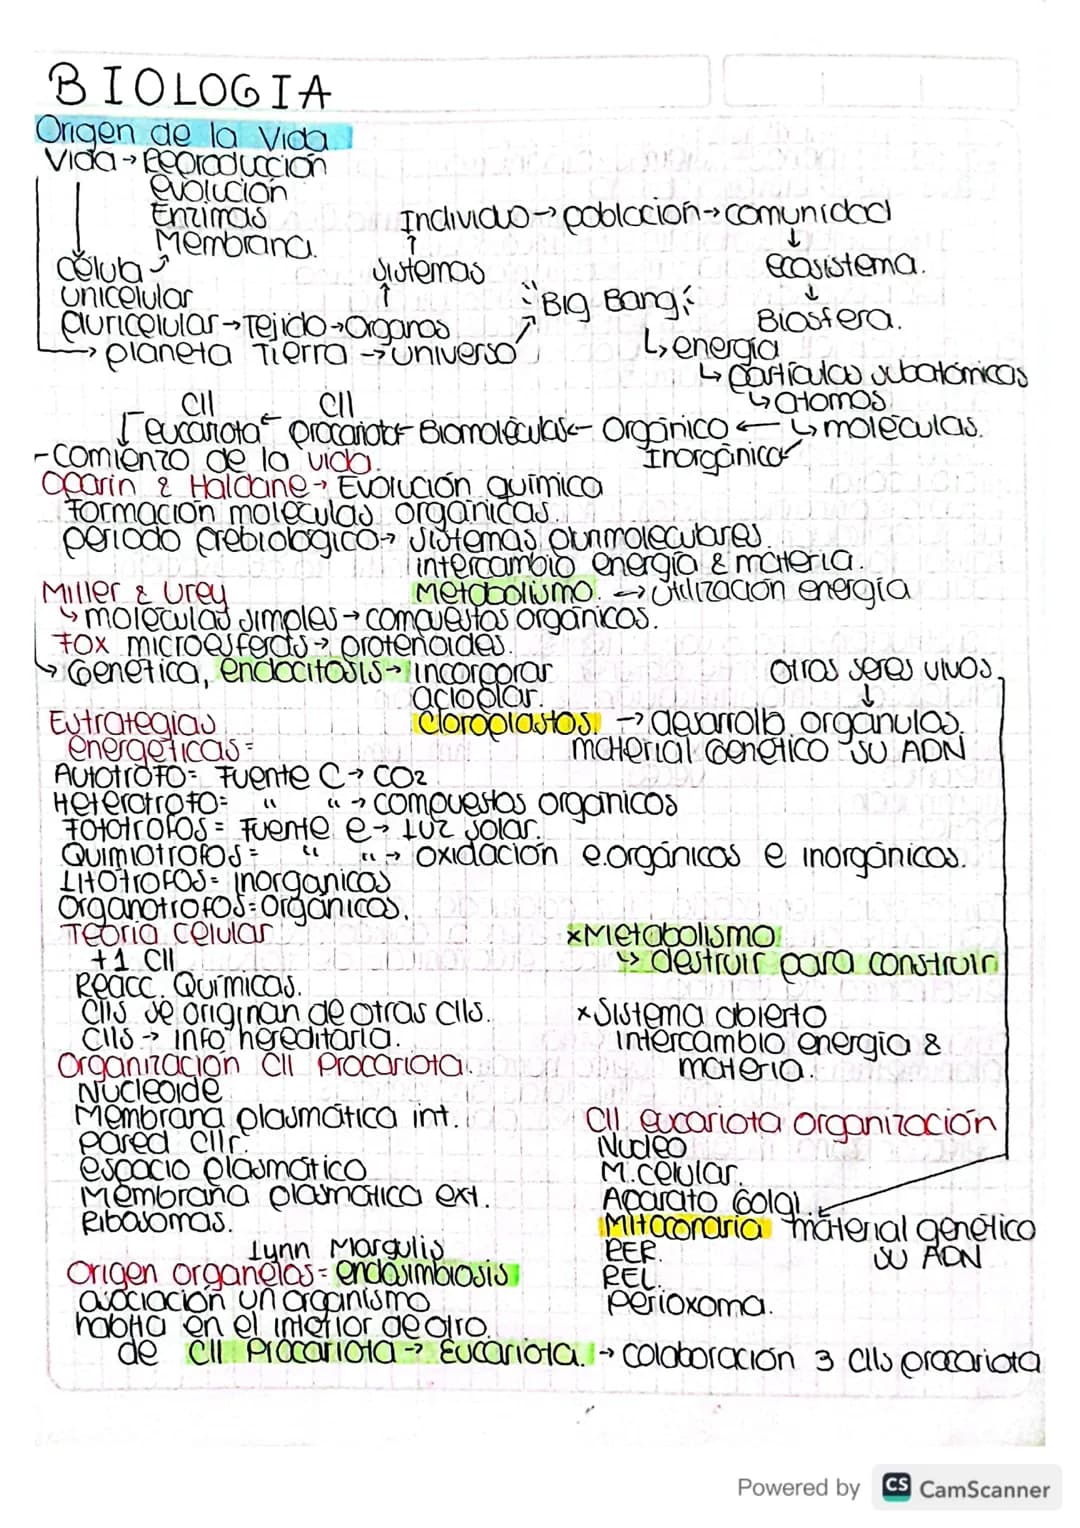 BIOLOGIA
Origen de la Vida
Vida → Reproducción
evolución
Enzimas
Membrana.
Individuo → población → comunidad
célula
sistemas
ecosistema.
unicelular
"Big Bang"
pluricelular → Tejido → Organos
Biosfera.
→ planeta Tierra → universo
↳ energía
↳ partículas subatómicas
↳ atomos
Cll Cll
eucariota ← procariota ← Biomoléculas ← Orgánico ← ↳ moléculas.
- Comienzo de la vida.
Inorgánico
Oparin & Haldane → Evolución química
Formación moléculas orgánicas.
periodo prebiologico → sistemas punmoleculares.
intercambio energía & materia.
Miller & Urey
Metabolismo. → Utilización energía
↳ moléculas simples → compuestos orgánicos.
Fox microesferas → protenoides.
↳ Genetica, endocitosis → incorporar
Otros seres vivos
acloplar.
Estrategias
Cloroplastos. → desarrollo organulos.
energeticas =
material Genético su ADN
Autotrofo = Fuente C → CO2
Heterotrofo = " " → compuestos organicos
Fototrofos = Fuente e → Luz solar.
Quimiotrofos = " " → oxidación e.orgánicos e inorgánicos.
Litotrofos = inorganicos
Organotrofos = orgánicos.
Teoria celular
+1 Cll
Reacc. Químicas.
Clls se originan de otras clls.
Clls → info hereditaria.
xMetabolismo:
↳ destruir para construir
xSistema abierto
intercambio energia &
materia.
Organización Cll Procariota.
Nucleoide
Membrana plasmática int.
pared cllr.
espacio plasmático
Membrana plasmática ext.
Ribosomas.
Cll eucariota organización
Nucleo
M. celular.
Aparato Golgi.
Mitocondria material genético
su ADN
RER.
REL.
Perioxoma.
Lynn Margulis
Origen organelos = endosimbiosis
asociación un organismo
habita en el interior de otro.
de Cll Procariota → Eucariota. → colaboración 3 clls procariota
Powered by CS CamScanner